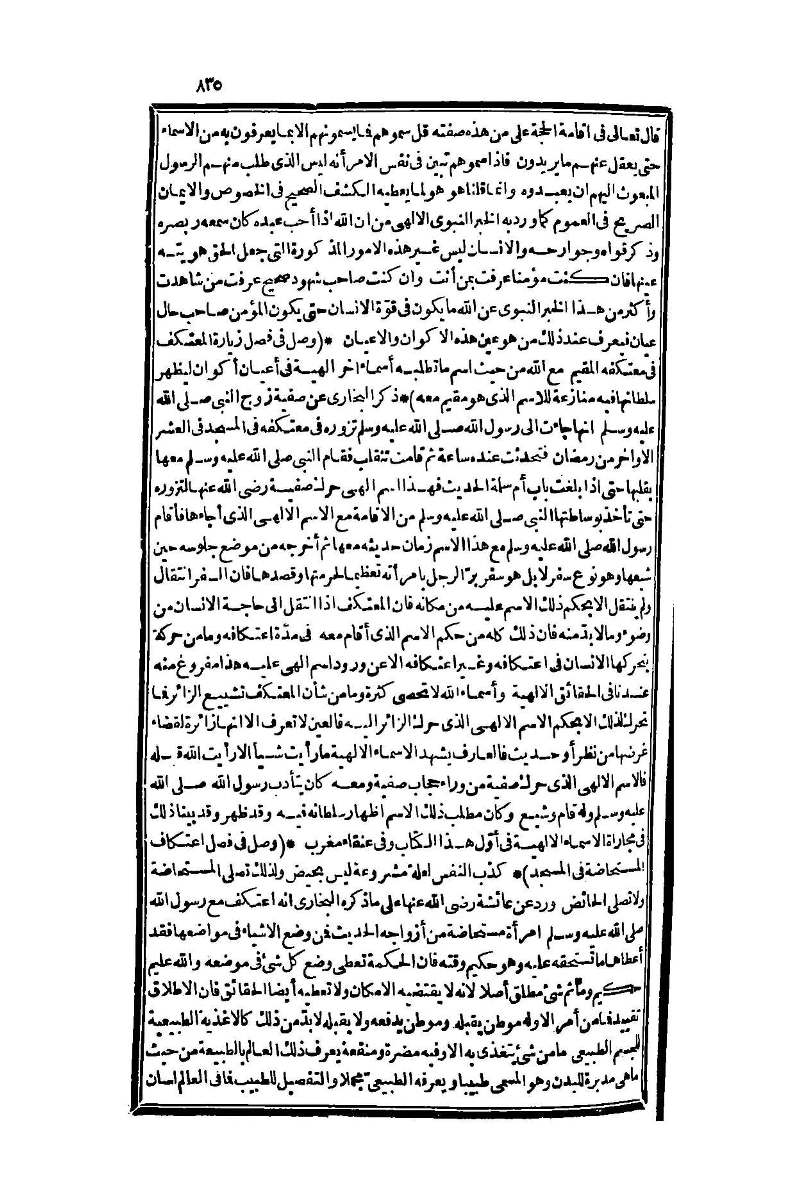 ٨٣٥
قال تعالى فى اقامة الحجة على من هذه صفته قل سموهم فما يسمونهم الا بما يعرفون به من الاسماء
حتى يعقل عنهم ما يريدون فاذا سموهم تبين فى نفس الامر أنه ليس الذى طلب منهم الرسول
المبعوث اليهم ان يعبدوه وانما قلنا هو هو لما يعطيه الكشف الصحيح فى الخصوص والايمان
الصريح فى العموم كما ورد به الخبر النبوى الالهى من ان الله اذا أحب عبده كان سمعه وبصره
وذكر قواه وجوارحه والانسان ليس غير هذه الامور المذكورة التى جعل الحق هويته
عينها فان كنت مؤمنا عرفت بمن أنت وان كنت صاحب شهود صحيح عرفت من شاهدت
وأكثر من هذا الخبر النبوى عن الله ما يكون فى قوة الانسان حتى يكون المؤمن صاحب حال
عيان فيعرف عند ذلك من هو عين هذه الاكوان والاعيان *(وصل فى فصل زيارة المعتكف
فى معتكفه المقيم مع الله من حيث اسم ما تطلبه أسماء اخر الهية فى أعيان أكوان ليظهر
سلطانها فيه منازعة للاسم الذى هو مقيم معه)* ذكر البخارى عن صفية زوج النبى صلى الله
عليه وسلم انها جاءت الى رسول الله صلى الله عليه وسلم تزوره فى معتكفه فى المسجد فى العشر
الاواخر من رمضان فتحدثت عنده ساعة ثم قامت تنقلب فقام النبى صلى الله عليه وسلم معها
يقلبها حتى اذا بلغت باب أم سلمة الحديث فهذا اسم الهى حرك صفية رضى الله عنها لتزوره
حتى تأخذ بوساطتها النبى صلى الله عليه وسلم من الاقامة مع الاسم الالهى الذى أجاءها فأقام
رسول الله صلى الله عليه وسلم مع هذا الاسم زمان حديثه معها ثم أخرجه من موضع جلوسه حين
شيعها وهو نوع سفر لا بل هو سفر بر الرجل بامرأته تعظيما لحرمتها وقصدها فان السفر انتقال
ولم ينتقل الا بحكم ذلك الاسم عليه من مكانه فان المعتكف اذا انتقل الى حاجة الانسان من
وضوء وما لا بد منه فان ذلك كله من حكم الاسم الذى أقام معه فى مدة اعتكافه وما من حركة
يتحركها الانسان فى اعتكافه وغير اعتكافه الا عن ورود اسم الهى عليه هذا مفروغ منه
عندنا فى الحقائق الالهية وأسماء الله لا تحصى كثرة وما من شأن المعتكف تشييع الزائر فما
تحرك لذلك الا بحكم الاسم الالهى الذى حرك الزائر اليه فالعين لا تعرف الا انها زائرة لقضاء
غرضها من نظر أو حديث فالعارف يشهد الاسماء الالهية ما رأيت شيأ الا رأيت الله قبله
فالاسم الالهى الذى حرك صفية من وراء حجاب صفية ومعه كان يتأدب رسول الله صلى الله
عليه وسلم وله قام وشيع وكان مطلب ذلك الاسم اظهار سلطانه فيه وقد ظهر وقد بينا ذلك
فى مجاراة الاسماء الالهية فى أول هذا الكتاب وفى عنقاء مغرب *(وصل فى فصل اعتكاف
المستحاضة فى المسجد)* كذب النفس لعلة مشروعة ليس بحيض ولذلك تصلى المستحاضة
ولا تصلى الحائض ورد عن عائشة رضى الله عنها على ما ذكره البخارى انه اعتكف مع رسول الله
صلى الله عليه وسلم امرأة مستحاضة من أزواجه الحديث فمن وضع الاشياء فى مواضعها فقد
أعطاها ما تستحقه عليه وهو حكيم وقته فان الحكمة تعطى وضع كل شئ فى موضعه والله عليم
حكيم وما ثم شئ مطلق أصلا لانه لا يقتضيه الامكان ولا تعطيه أيضا الحقائق فان الاطلاق
تقييد فما من أمر الا وله موطن يقبله وموطن يدفعه ولا يقبله لا بد من ذلك كالاغذية الطبيعية
للجسم الطبيعى ما من شئ يتغذى به الا وفيه مضرة ومنفعة يعرف ذلك العالم بالطبيعة من حيث
ما هى مدبرة للبدن وهو المسمى طبيبا ويعرفه الطبيعى مجملا والتفصيل للطبيب فما فى العالم لسان